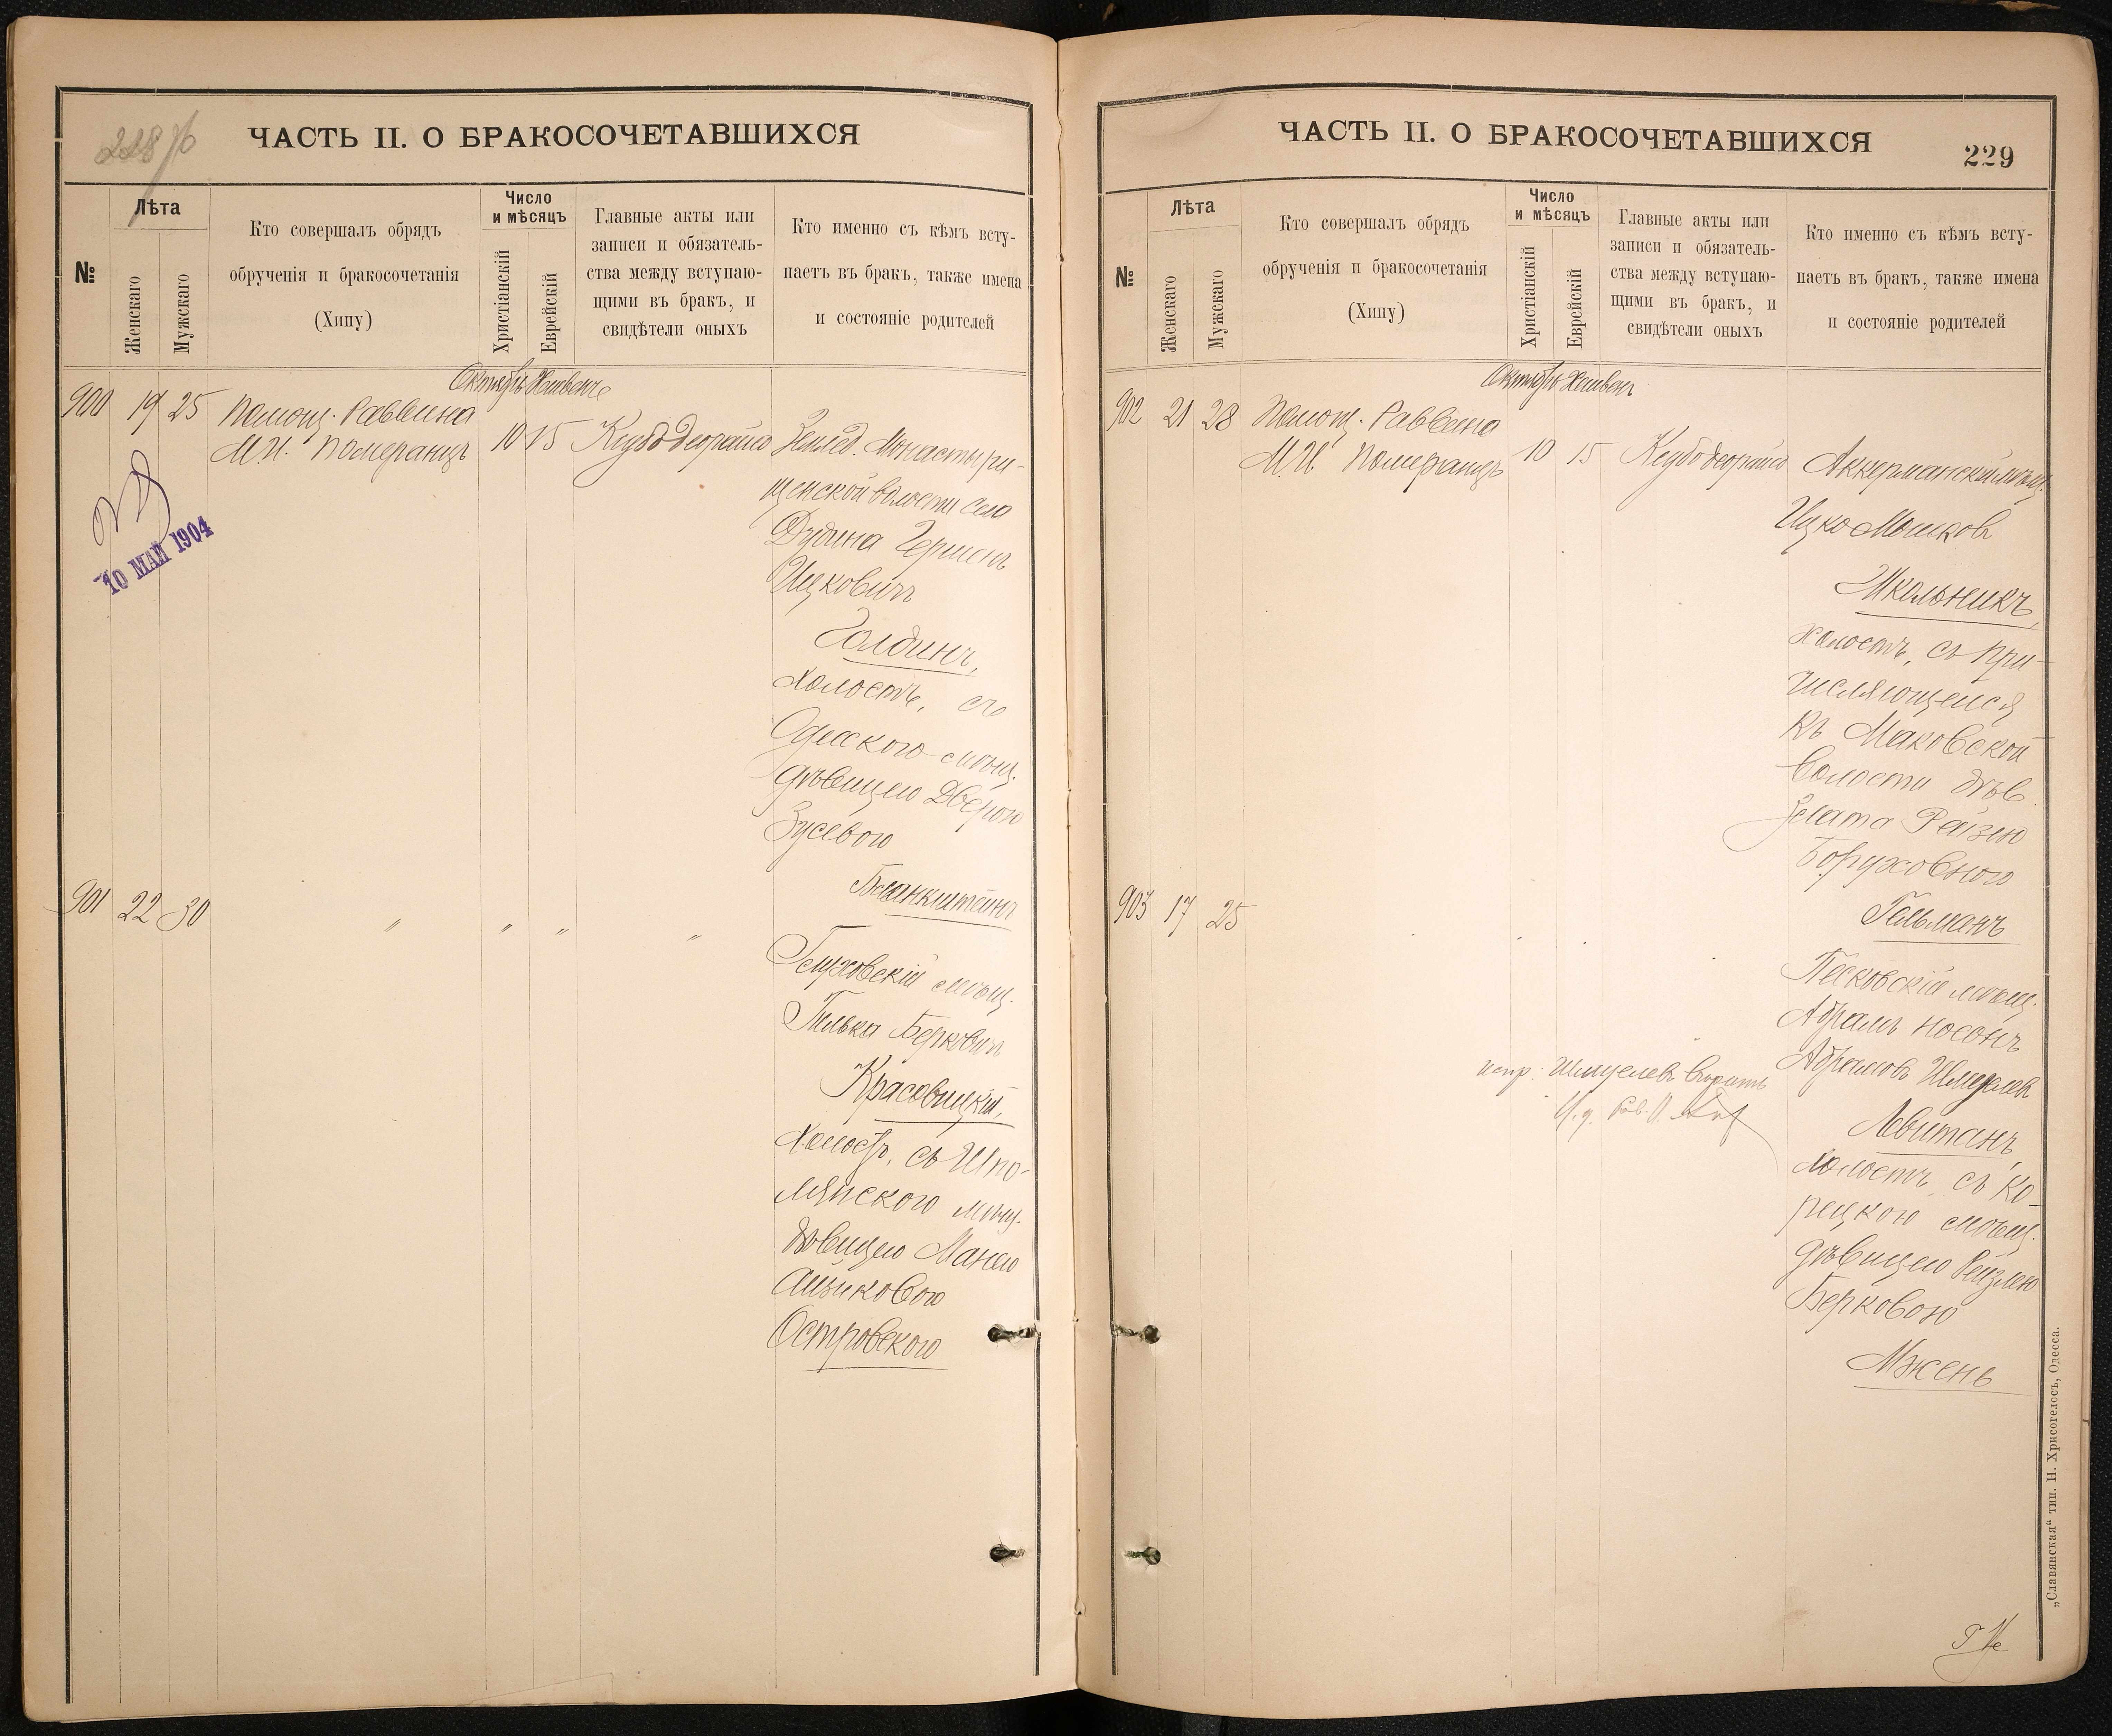 228 об
ЧАСТЬ II. О БРАКОСОЧЕТАВШИХСЯ
№
Лѣта
Женскаго
Мужскаго
Кто совершалъ обрядъ
обрученія и бракосочетанія
(Хипу)
Число
и мѣсяцъ
Христіанскій
Еврейскій
Главные акты или
записи и обязатель-
ства между вступаю-
щими въ бракъ, и
свидѣтели оныхъ
Кто именно съ кѣмъ всту-
паетъ въ бракъ, также имена
и состояніе родителей
Октябрь Хешвенъ
900 19 25 Помощ. Раввина
М.И. Померанцъ 10 15
Землед. Монастыри-
щенской волости села
Дудина Гершенъ
Ицковичъ
Голдинъ,
холостъ, съ
Одесского мѣщ.
дѣвицею Дверою
Зусевою
Бланкштейнъ
901 22 30 " " " "
Глуховскій мѣщ.
Гилька Берковичъ
Красовицкій,
холостъ, съ Шпо-
лянского мѣщ.
дѣвицею Манею
Айзиковою
Островского
10 МАЙ 1904
ЧАСТЬ II. О БРАКОСОЧЕТАВШИХСЯ
229
№
Лѣта
Женскаго
Мужскаго
Кто совершалъ обрядъ
обрученія и бракосочетанія
(Хипу)
Число
и мѣсяцъ
Христіанскій
Еврейскій
Главные акты или
записи и обязатель-
ства между вступаю-
щими въ бракъ, и
свидѣтели оныхъ
Кто именно съ кѣмъ всту-
паетъ въ бракъ, также имена
и состояніе родителей
Октябрь Хешвенъ
902 21 28 Помощ. Раввина
М.И. Померанцъ 10 15
Аккерманскій мѣщ.
Ицко Мошковъ
Школьникъ,
холостъ, съ при-
числяющейся
къ Маковской
волости дѣв.
Злата Рейзею
Боруховною
Гельманъ
903 17 25
Песковскій мѣщ.
Абрамъ Носонъ
Абрамовъ Шмулевъ
испр. Шмулевъ вѣрить
Левитанъ,
холостъ, съ Ко-
рецкою мѣщ.
дѣвицею Рейзлею
Берковою
Мжень
„Славянская“ тип. Н. Хрисогелосъ, Одесса.